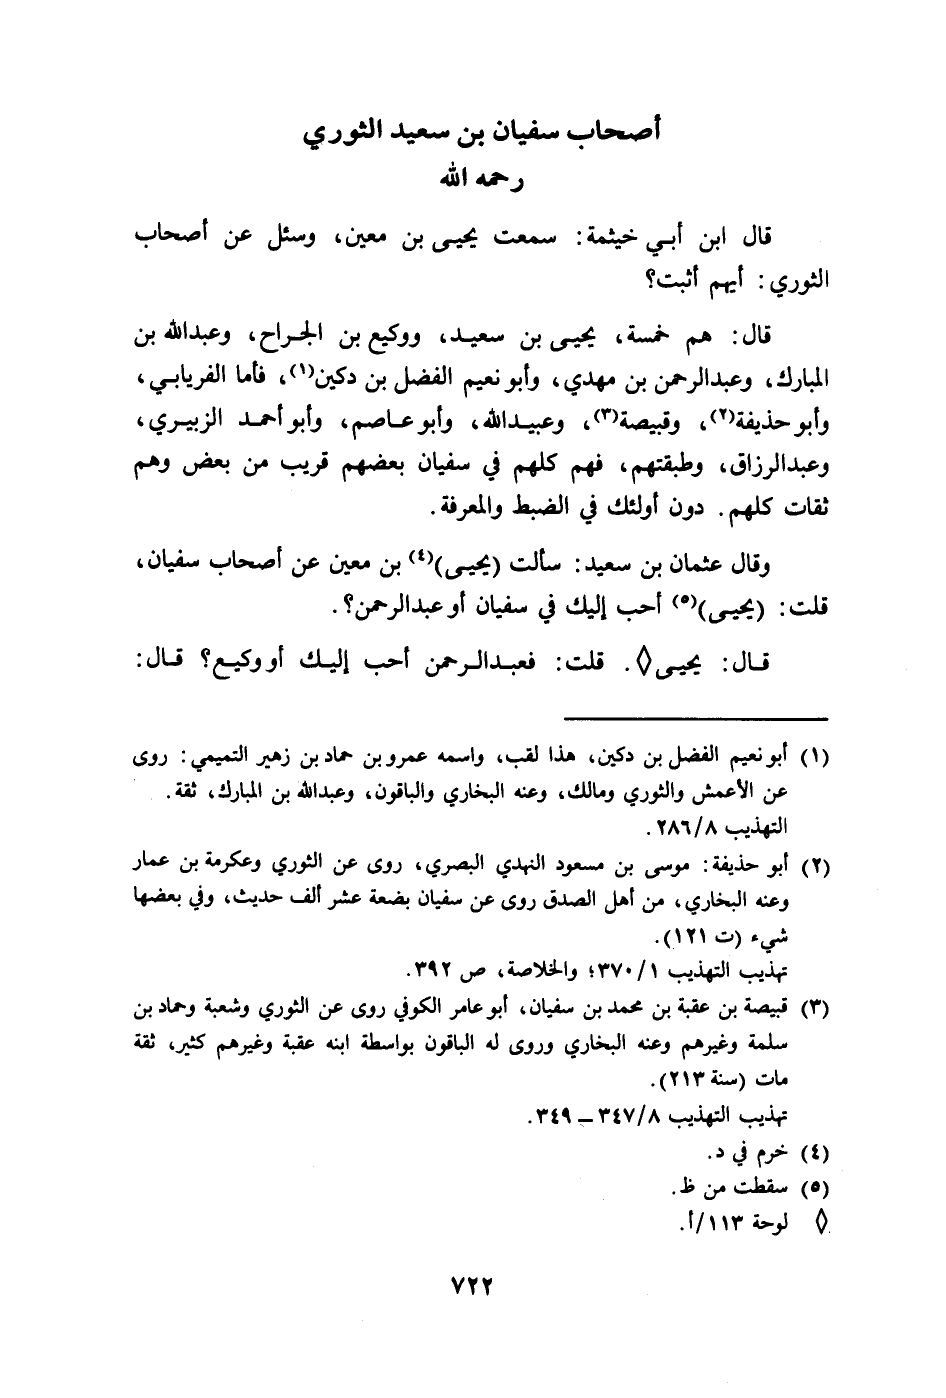 أصحاب سفيان بن سعيد الثوري
رحمه الله
قال ابن أبي خيثمة: سمعت يحيى بن معين، وسئل عن أصحاب
الثوري: أيهم أثبت؟
قال: هم خمسة، يحيى بن سعيد، ووكيع بن الجراح، وعبدالله بن
المبارك، وعبدالرحمن بن مهدي، وأبو نعيم الفضل بن دكين(١)، فأما الفريابي،
وأبو حذيفة(٢)، وقبيصة(٣)، وعبيدالله، وأبو عاصم، وأبو أحمد الزبيري،
وعبدالرزاق، وطبقتهم، فهم كلهم في سفيان بعضهم قريب من بعض وهم
ثقات كلهم. دون أولئك في الضبط والمعرفة.
وقال عثمان بن سعيد: سألت (يحيى)(٤) بن معين عن أصحاب سفيان،
قلت: (يحيى)(٥) أحب إليك في سفيان أو عبدالرحمن؟.
قال: يحيى◊. قلت: فعبدالرحمن أحب إليك أو وكيع؟ قال:
(١) أبو نعيم الفضل بن دكين، هذا لقب، واسمه عمرو بن حماد بن زهير التميمي: روى
عن الأعمش والثوري ومالك، وعنه البخاري والباقون، وعبدالله بن المبارك، ثقة.
التهذيب ٢٨٦/٨.
(٢) أبو حذيفة: موسى بن مسعود النهدي البصري، روى عن الثوري وعكرمة بن عمار
وعنه البخاري، من أهل الصدق روى عن سفيان بضعة عشر ألف حديث، وفي بعضها
شيء (ت ١٢١).
تهذيب التهذيب ٣٧٠/١؛ والخلاصة، ص ٣٩٢.
(٣) قبيصة بن عقبة بن محمد بن سفيان، أبو عامر الكوفي روى عن الثوري وشعبة وحماد بن
سلمة وغيرهم وعنه البخاري وروى له الباقون بواسطة ابنه عقبة وغيرهم كثير، ثقة
مات (سنة ٢١٣).
تهذيب التهذيب ٣٤٧/٨ ــ ٣٤٩.
(٤) خرم في د.
(٥) سقطت من ظ.
◊ لوحة ١١٣/أ.
٧٢٢